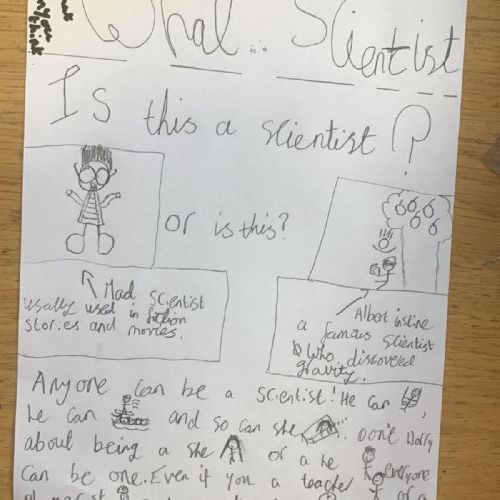 What is a Scientist
Is this a scientist?
or is this?
Mad Scientist
usally used in fiction
stories and movies.
Albert instine
a famous scientist
who discovered
gravity.
Anyone can be a scientist! He can
he can and so can she . Don't worry
about being a she or a he everyone
can be one. Even if you a teacher